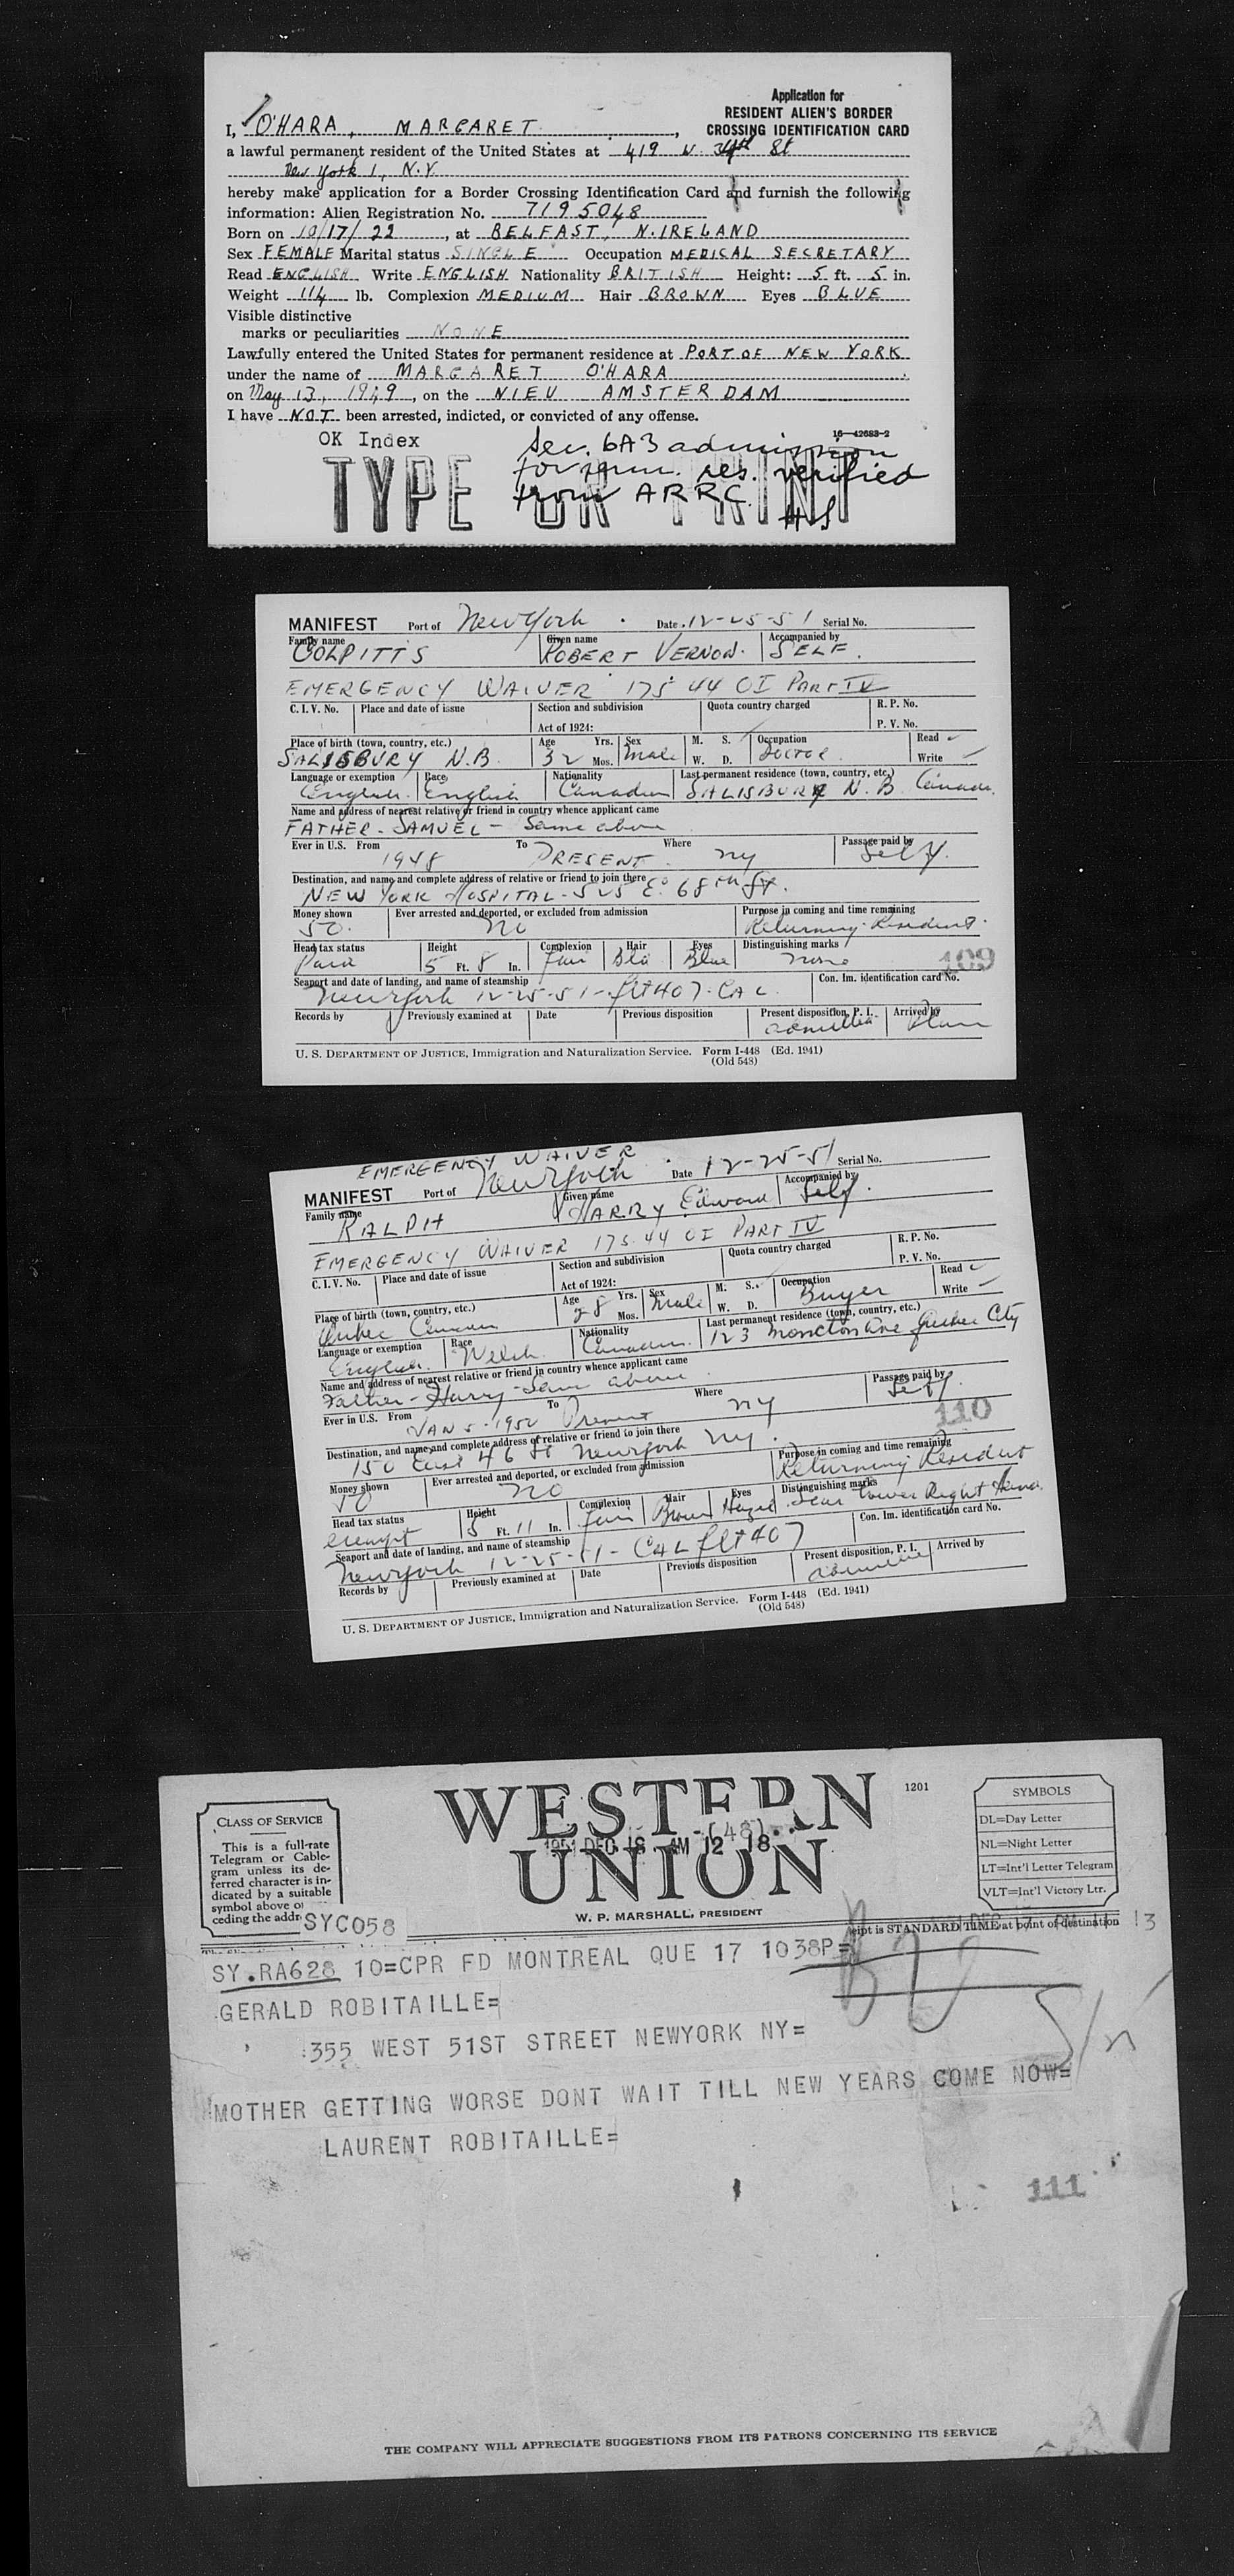 Application for
RESIDENT ALIEN'S BORDER
CROSSING IDENTIFICATION CARD
I, O'HARA, MARGARET,
a lawful permanent resident of the United States at 419 W 34th St
New York 1, N.Y.
hereby make application for a Border Crossing Identification Card and furnish the following
information: Alien Registration No. 7195048
Born on 10/17/22, at BELFAST, N. IRELAND
Sex FEMALE Marital status SINGLE Occupation MEDICAL SECRETARY
Read ENGLISH Write ENGLISH Nationality BRITISH Height: 5 ft. 5 in.
Weight 114 lb. Complexion MEDIUM Hair BROWN Eyes BLUE
Visible distinctive
marks or peculiarities NONE
Lawfully entered the United States for permanent residence at PORT OF NEW YORK
under the name of MARGARET O'HARA
on May 13, 1949, on the NIEU AMSTERDAM
I have NOT been arrested, indicted, or convicted of any offense.
16—42683-2
OK Index
Sec. 6A3 admission
for perm. res. verified
from ARRC.
HS
TYPE OR PRINT
MANIFEST Port of New York Date 12-25-51 Serial No.
Family name Given name Accompanied by
COLPITTS ROBERT VERNON. SELF.
EMERGENCY WAIVER 175 44 OI PART IV
C. I. V. No. Place and date of issue Section and subdivision Quota country charged R. P. No.
Act of 1924: P. V. No.
Place of birth (town, country, etc.) Age Yrs. Sex M. S. Occupation Read
SALISBURY N.B. 32 Mos. Male W. D. Doctor Write
Language or exemption Race Nationality Last permanent residence (town, country, etc.)
English English Canadian SALISBURY N.B. Canada
Name and address of nearest relative or friend in country whence applicant came
FATHER - SAMUEL - Same above
Ever in U.S. From To Where Passage paid by
1948 PRESENT. NY Self.
Destination, and name and complete address of relative or friend to join there
NEW YORK HOSPITAL - 525 E. 68th St.
Money shown Ever arrested and deported, or excluded from admission Purpose in coming and time remaining
50. No Returning Resident.
Head tax status Height Complexion Hair Eyes Distinguishing marks
Paid 5 Ft. 8 In. Fair Bla Blue none
109
Seaport and date of landing, and name of steamship Con. Im. identification card No.
New York 12-25-51 - flt 407. CAL.
Records by Previously examined at Date Previous disposition Present disposition, P. I. Arrived by
admitted Plane
U. S. DEPARTMENT OF JUSTICE, Immigration and Naturalization Service. Form I-448 (Ed. 1941)
(Old 548)
EMERGENCY WAIVER
MANIFEST Port of New York Date 12-25-51 Serial No.
Family name Given name Accompanied by
RALPH HARRY Edward Self.
EMERGENCY WAIVER 175 44 OI PART IV
C. I. V. No. Place and date of issue Section and subdivision Quota country charged R. P. No.
Act of 1924: P. V. No.
Place of birth (town, country, etc.) Age Yrs. Sex M. S. Occupation Read
Quebec Canada 28 Mos. Male W. D. Buyer Write
Language or exemption Race Nationality Last permanent residence (town, country, etc.)
English Welsh Canadian 123 Moncton Ave Quebec City
Name and address of nearest relative or friend in country whence applicant came
Father - Harry - Same above
Ever in U.S. From To Where Passage paid by
JAN 5 - 1950 Present NY Self
110
Destination, and name and complete address of relative or friend to join there
150 East 46 St New York NY.
Money shown Ever arrested and deported, or excluded from admission Purpose in coming and time remaining
50 NO Returning Resident
Head tax status Height Complexion Hair Eyes Distinguishing marks
exempt 5 Ft. 11 In. Fair Brown Hazel Scar lower Right
Seaport and date of landing, and name of steamship Con. Im. identification card No.
New York 12-25-51 - CAL flt 407
Records by Previously examined at Date Previous disposition Present disposition, P. I. Arrived by
admitted
U. S. DEPARTMENT OF JUSTICE, Immigration and Naturalization Service. Form I-448 (Ed. 1941)
(Old 548)
CLASS OF SERVICE
This is a full-rate
Telegram or Cable-
gram unless its de-
ferred character is in-
dicated by a suitable
symbol above or
ceding the addr
WESTERN
UNION
1201
(48)
1951 DEC 18 AM 12 18
W. P. MARSHALL, PRESIDENT
SYMBOLS
DL=Day Letter
NL=Night Letter
LT=Int'l Letter Telegram
VLT=Int'l Victory Ltr.
SYC058
eipt is STANDARD TIME at point of destination
SY.RA628 10=CPR FD MONTREAL QUE 17 1038P=
GERALD ROBITAILLE=
:355 WEST 51ST STREET NEWYORK NY=
MOTHER GETTING WORSE DONT WAIT TILL NEW YEARS COME NOW=
LAURENT ROBITAILLE=
111
THE COMPANY WILL APPRECIATE SUGGESTIONS FROM ITS PATRONS CONCERNING ITS SERVICE